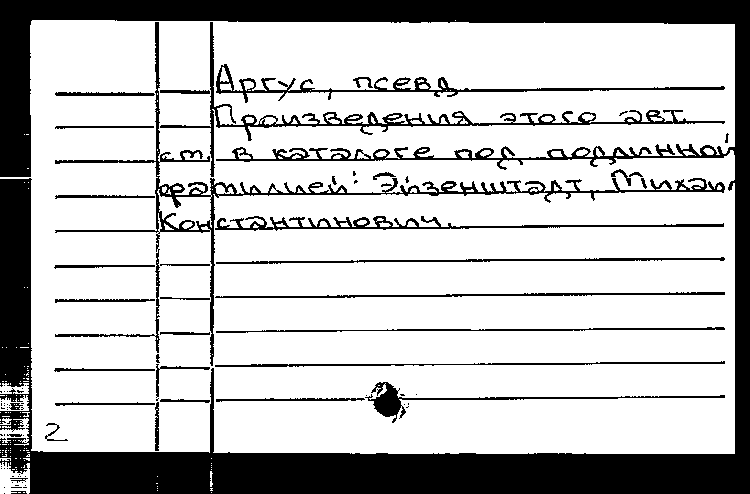 Аргус, псевд.
Произведения этого авт.
см. в каталоге под подлинной
фамилией: Эйзенштадт, Михаил
Константинович.
2